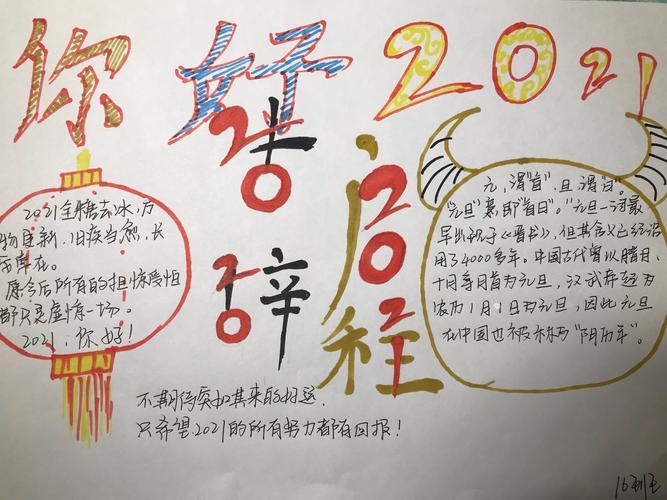 你好2021
2020 告辞
2021 启程
2021愿糖去冰，万
物更新，旧疾当愈，长
安常在。
愿今后所有的担惊受怕
都只是虚惊一场。
2021，你好！
元，谓"首"，旦谓"日"。
"元旦"意即"首日"。"元旦"一词最
早出现于《晋书》，但其含义已经沿
用了4000多年。中国古代曾以腊月、
十月等月首为元旦，汉武帝起为
农历1月1日为元旦，因此元旦
在中国也被称为"阴历年"。
不期待突如其来的好运，
只希望2021的所有努力都有回报！